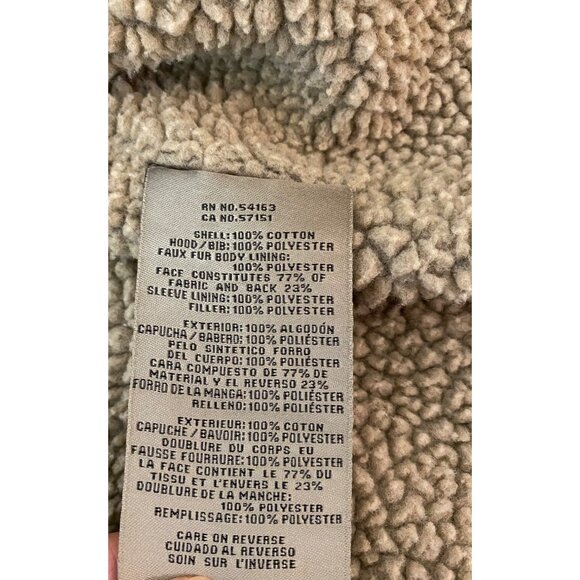 RN NO.54163
CA NO.57151
SHELL:100% COTTON
HOOD/BIB:100% POLYESTER
FAUX FUR BODY LINING:
100% POLYESTER
FACE CONSTITUTES 77% OF
FABRIC AND BACK 23%
SLEEVE LINING:100% POLYESTER
FILLER:100% POLYESTER
EXTERIOR:100% ALGODÓN
CAPUCHA/BABERO:100% POLIÉSTER
PELO SINTETICO FORRO
DEL CUERPO:100% POLIÉSTER
CARA COMPUESTO DE 77% DE
MATERIAL Y EL REVERSO 23%
FORRO DE LA MANGA:100% POLIÉSTER
RELLENO:100% POLIÉSTER
EXTERIEUR:100% COTON
CAPUCHE/BAVOIR:100% POLYESTER
DOUBLURE DU CORPS EU
FAUSSE FOURRURE:100% POLYESTER
LA FACE CONTIENT LE 77% DU
TISSU ET L'ENVERS LE 23%
DOUBLURE DE LA MANCHE:
100% POLYESTER
REMPLISSAGE:100% POLYESTER
CARE ON REVERSE
CUIDADO AL REVERSO
SOIN SUR L'INVERSE